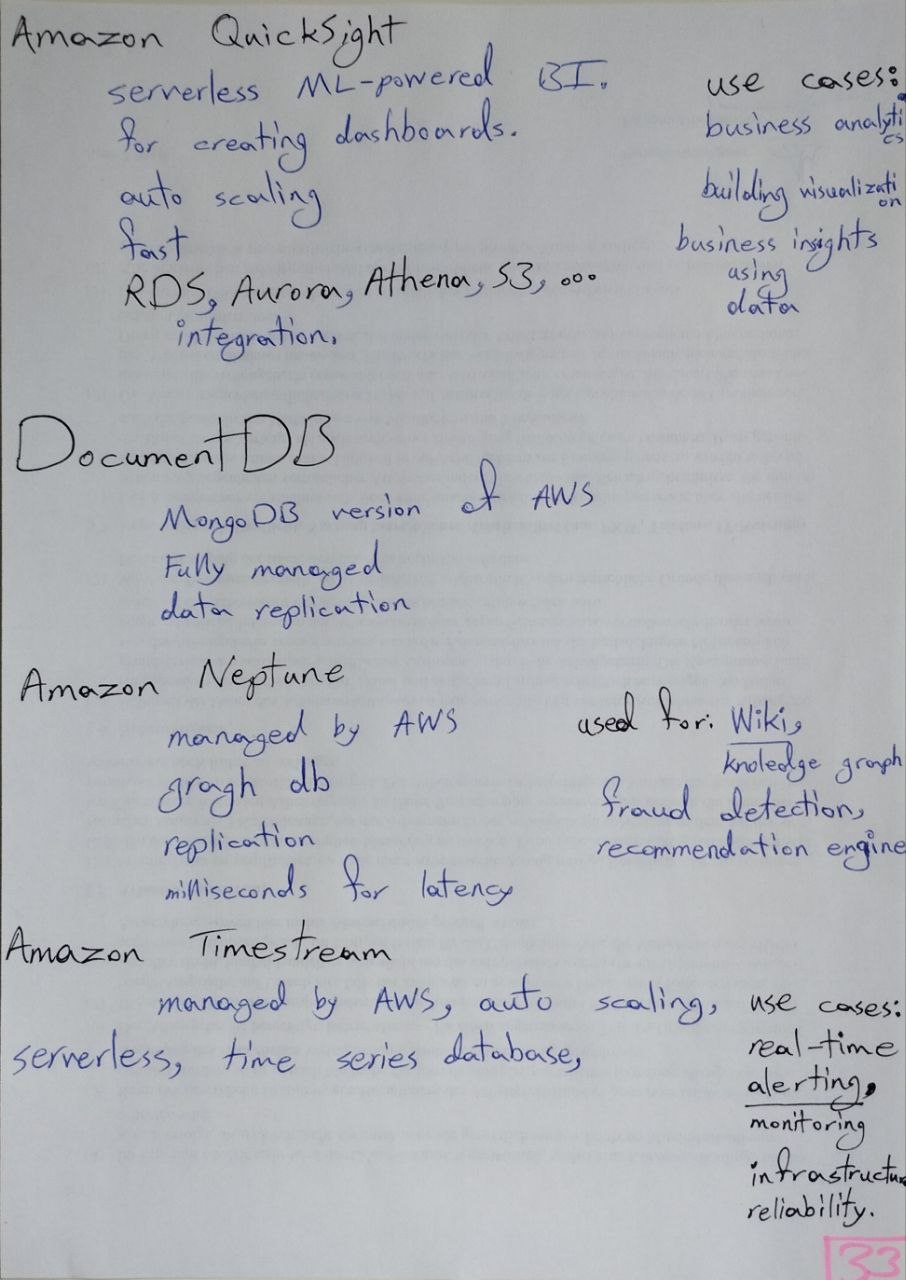 Amazon QuickSight
serverless ML-powered BI.
for creating dashboards.
auto scaling
fast
RDS, Aurora, Athena, S3, ...
integration.
use cases:
business analyti
cs
building visualizati
on
business insights
using
data
DocumentDB
MongoDB version of AWS
Fully managed
data replication
Amazon Neptune
managed by AWS
gragh db
replication
milliseconds for latency
used for: Wiki,
knoledge graph
fraud detection,
recommendation engine
Amazon Timestream
managed by AWS, auto scaling,
serverless, time series database,
use cases:
real-time
alerting,
monitoring
infrastructure
reliability.
33